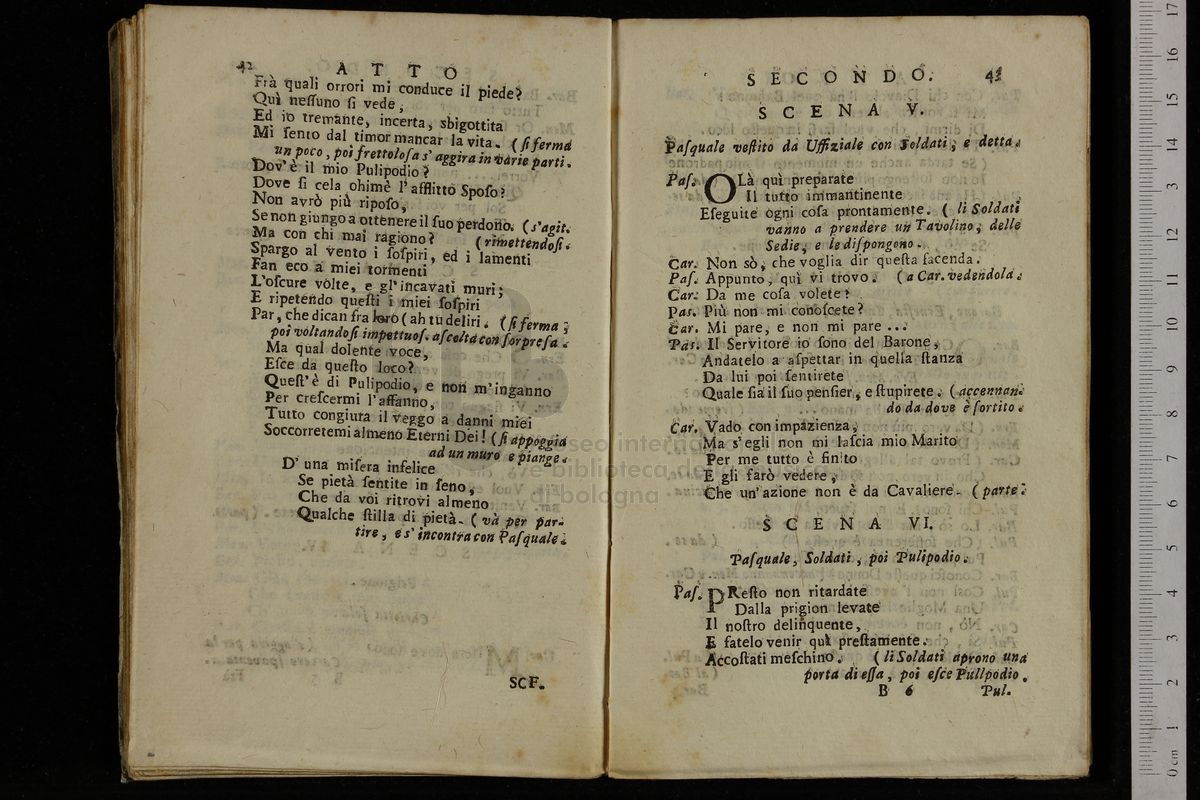 42 ATTO
Frà quali orrori mi conduce il piede?
Quì neſſuno ſi vede,
Ed io tremante, incerta, sbigottita
Mi ſento dal timor mancar la vita. (ſi ferma
un poco, poi frettoloſa s' aggira in varie parti.
Dov'è il mio Pulipodio?
Dove ſi cela ohimè l'afflitto Spoſo?
Non avrò più ripoſo,
Se non giungo a ottenere il ſuo perdono. (s'agit.
Ma con chi mai ragiono? (rimettendoſi.
Spargo al vento i ſoſpiri, ed i lamenti
Fan eco a miei tormenti
L'oſcure vòlte, e gl'incavati muri;
E ripetendo queſti i miei ſoſpiri
Par, che dican fra loro (ah tu deliri. (ſi ferma;
poi voltandoſi impettuoſ. aſcolta con ſorpreſa.
Ma qual dolente voce,
Eſce da queſto loco?
Queſt'è di Pulipodio, e non m'inganno
Per creſcermi l'affanno,
Tutto congiura il veggo a danni miei
Soccorretemi almeno Eterni Dei! (ſi appoggia
ad un muro e piange.
D' una miſera infelice
Se pietà ſentite in ſeno,
Che da voi ritrovi almeno
Qualche ſtilla di pietà. (và per par-
tire, e s' incontra con Paſquale.
SCE.
SECONDO. 43
SCENA V.
Paſquale veſtito da Uffiziale con Soldati, e detta.
Paſ. OLà quì preparate
Il tutto immantinente
Eſeguite ogni coſa prontamente. (li Soldati
vanno a prendere un Tavolino, delle
Sedie, e le diſpongono.
Car. Non sò, che voglia dir queſta facenda.
Paſ. Appunto, quì vi trovo. (a Car. vedendola.
Car. Da me coſa volete?
Pas. Più non mi conoſcete?
Car. Mi pare, e non mi pare ...
Pas. Il Servitore io ſono del Barone,
Andatelo a aſpettar in quella ſtanza
Da lui poi ſentirete
Quale ſia il ſuo penſier, e ſtupirete. (accennan-
do da dove è ſortito.
Car. Vado con impazienza,
Ma s'egli non mi laſcia mio Marito
Per me tutto è finito
E gli farò vedere,
Che un'azione non è da Cavaliere. (parte.
SCENA VI.
Paſquale, Soldati, poi Pulipodio.
Paſ. PReſto non ritardate
Dalla prigion levate
Il noſtro delinquente,
E fatelo venir quì preſtamente.
Accoſtati meſchino. (li Soldati aprono una
porta di eſſa, poi eſce Pullpodio.
B 6 Pul.
museo internazionale
e biblioteca della musica
di bologna